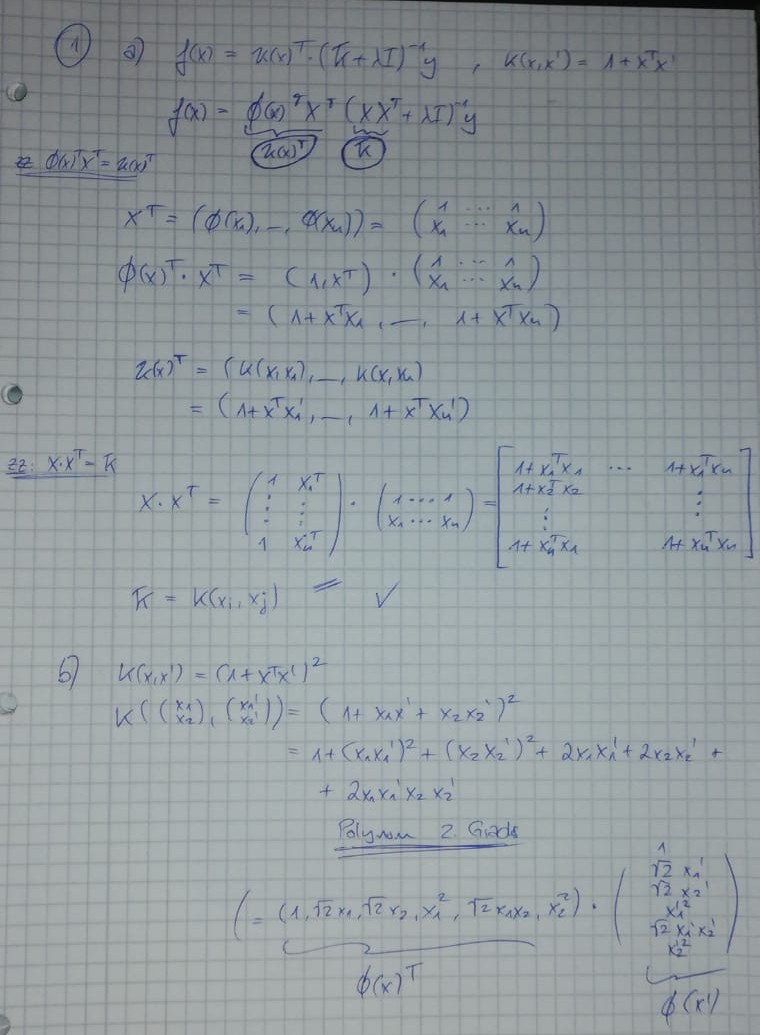 ① a) f(x) = κ(x)ᵀ·(K+λI)⁻¹y , k(x,x') = 1+xᵀx'
f(x) = ϕ(x)ᵀXᵀ (XXᵀ+λI)⁻¹y
κ(x)ᵀ K
zz ϕ(x)ᵀXᵀ = κ(x)ᵀ
Xᵀ = (ϕ(x₁), …, ϕ(xₙ)) = (1 ⋯ 1
x₁ ⋯ xₙ)
ϕ(x)ᵀ·Xᵀ = (1, xᵀ) · (1 ⋯ 1
x₁ ⋯ xₙ)
= (1+xᵀx₁, …, 1+xᵀxₙ)
κ(x)ᵀ = (k(x,x₁), …, k(x,xₙ)
= (1+xᵀx₁', …, 1+xᵀxₙ')
zz: X·Xᵀ = K
X·Xᵀ = (1 x₁ᵀ
⋮ ⋮
1 xₙᵀ) · (1 ⋯ 1
x₁ ⋯ xₙ) = [1+x₁ᵀx₁ ⋯ 1+x₁ᵀxₙ
1+x₂ᵀx₂
⋮ ⋮
1+xₙᵀx₁ 1+xₙᵀxₙ]
K = k(xᵢ, xⱼ) = ✓
b) k(x,x') = (1+xᵀx')²
k((x₁
x₂), (x₁'
x₂')) = (1+x₁x' + x₂x₂')²
= 1+(x₁x₁')² + (x₂x₂')² + 2x₁x₁' + 2x₂x₂' +
+ 2x₁x₁'x₂x₂'
Polynom 2. Grads
( = (1, √2x₁, √2x₂, x₁², √2x₁x₂, x₂²) · (1
√2 x₁'
√2 x₂'
x₁'²
√2 x₁'x₂'
x₂'²)
ϕ(x)ᵀ ϕ(x')